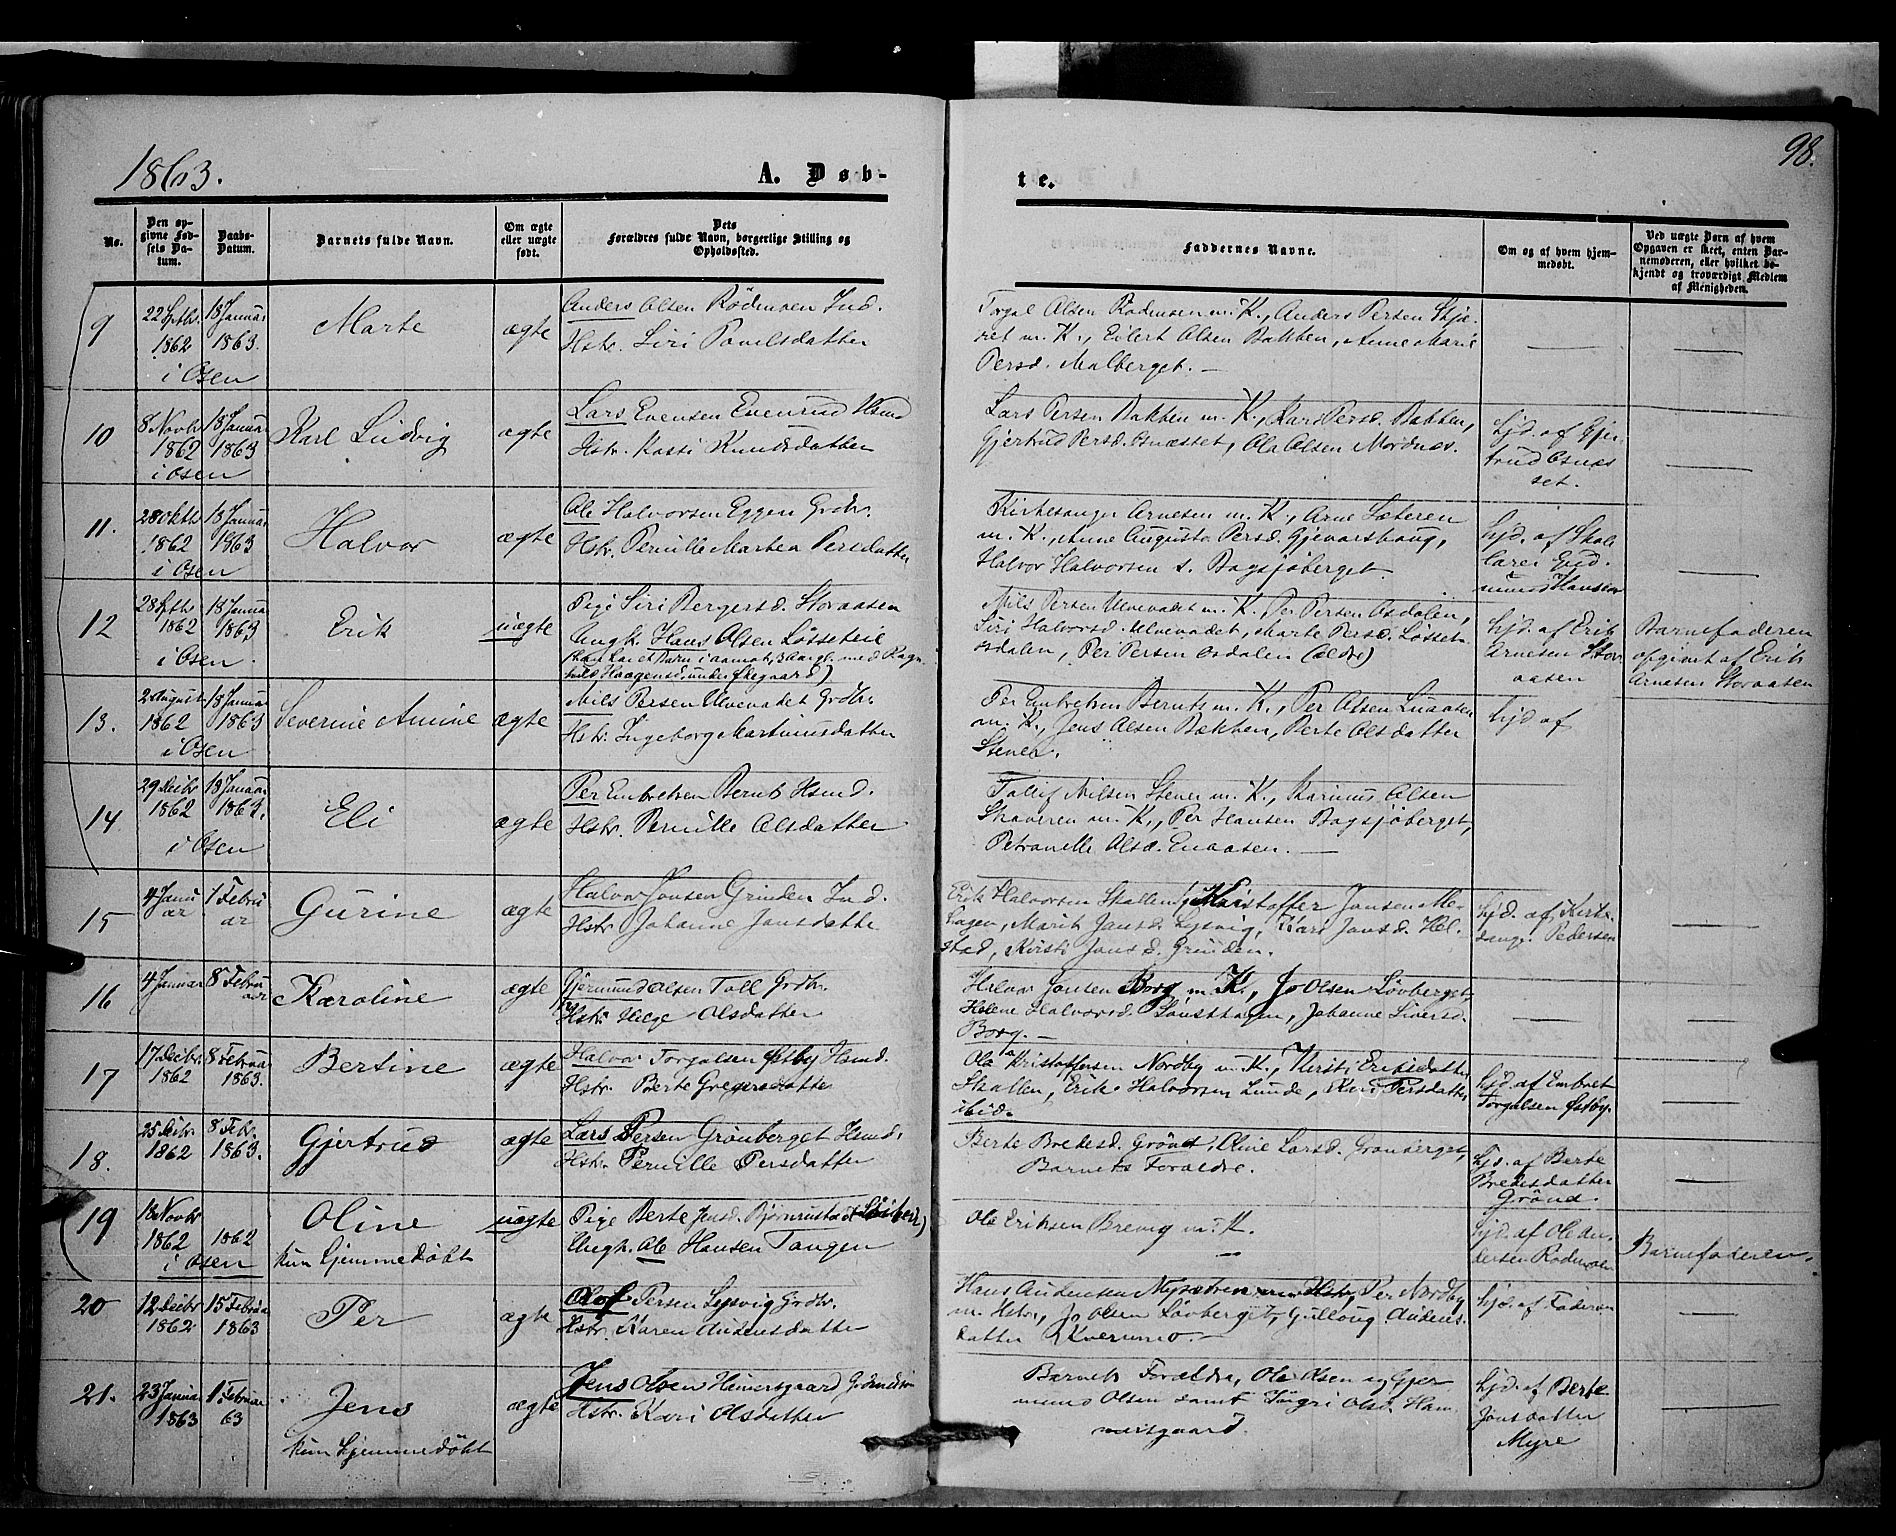 1863.
A. Døb-
te.
98.
No.
Den op-
givne Fød-
sels Da-
tum.
Daabs-
Datum.
Barnets fulde Navn.
Om ægte
eller uægte
født.
Dets
Forældres fulde Navn, borgerlige Stilling og
Opholdssted.
Faddernes Navne.
Om og af hvem hjem-
medøbt.
Ved uægte Børn af hvem
Opgaven er skeet, enten Bar-
nemoderen, eller hvilket be-
kjendt og troværdigt Medlem
af Menigheden.
9
22 Septbr.
1862
i Osen
18 Januar
1863.
Marte
ægte
Anders Olsen Rödmoen Ind.
Hstr. Siri Povelsdatter
Torgal Olsen Rödmoen m. K., Anders Persen Skjæ-
ret m. K., Eilert Olsen Bakken, Anne Marie
Persd. Malberget. —
10
8 Novbr
1862
i Osen
18 Januar
1863
Karl Ludvig
ægte
Lars Evensen Evenrud Hsmd
Hstr. Kasti Knudsdatter
Lars Persen Bakken m. K., Kari Persd. Bakken,
Gjertrud Persd. Osnæsset, Ola Olsen Nordnæs.
hjd. af Gjer-
trud Osnæs
set.
11.
28 Oktbr
1862
i Osen
18 Januar
1863
Halvor
ægte
Ole Halvorsen Eggen Grdbr.
Hstr. Pernille Marthea Persdatter
Kirkesanger Arnesen m. K., Arne Sæteren
m. K., Anne Augusta Persd. Gjevarshaug,
Halvor Halvorsen s. Bagsjøberget.
hjd. af Skol
lærer Gud-
mund Hansen
12
28 Septbr
1862
i Osen.
18 Januar
1863
Erik
uægte
Pige Siri Bergersd. Storaasen
Ungk. Hans Olsen Lösseteie
(han har et Barn i Aamot, 3 Aar gl. med Ragn-
hild Haagensd. under Økegaard)
Nils Persen Ulvevadet m. K. Per Persen Osdalen,
Siri Halvorsd. Ulvevadet, Marte Persd. Løsset-
osdalen, Per Persen Osdalen (ældre)
hjd. af Erik
Arnesen Stor
aasen
Barnefaderen
opgivet af Erik
Arnesen Storaasen
13.
2 August
1862
i Osen
18 Januar
1863
Severine Amine
ægte
Nils Persen Ulvevadet Grdbr.
Hstr. Ingeborg Martinusdatter
Per Embretsen Bernts m. K., Per Olsen Enaasen
m. K., Jens Olsen Bækken, Berte Olsdatter
Stener.
hjd af
14
29 Decbr
1862
i Osen
18 Januar
1863.
Eli
ægte
Per Embretsen Bernts Hsmd.
Hstr. Pernille Olsdatter
Tollef Nilsen Stener m. K., Rasmus Olsen
Skaveren m. K., Per Hansen Bagsjøberget,
Petronelle Olsd. Enaasen. —
15
4 Janu
ar
1 Febru
ar
Gurine
ægte
Halvor Jonsen Grinden Ind.
Hstr. Johanne Jonsdatter
Erik Halvorsen Skallen, Kristoffer Jonsen Me-
hagen, Marit Jonsd. Lysvig, Kari Jonsd. Hel-
stad, Kirsti Jonsd. Grinden.
hjd. af Kirke-
sanger Pedersen
16
4 Januar
8 Febru
ar
Karoline
ægte
Gjermund Olsen Toll Grdbr.
Hstr. Helge Olsdatter
Halvor Jonsen Borg m. K., Jo Olsen Løvberget,
Helene Halvorsd. Sønsthagen, Johanne Siversd.
Borg. —
17
17 Decbr
1862
8 Februar
1863.
Bertine
ægte
Halvor Torgalsen Østby Hsmd.
Hstr. Berte Gregersdatter
Ole Kristoffersen Nordby m. K., Kirsti Eriksdatter
Skallen, Erik Halvorsen Lunde, Kari Persdatter
ibid.
hjd. af Embret
Torgalsen Østby.
18.
25 Decbr
1862
8 Febr.
1863.
Gjertrud
ægte
Lars Persen Grönberget Hsmd.
Hstr. Pernille Persdatter
Berte Bredesd. Grönd, Oline Larsd. Grønberget,
Barnets Forældre.
hjd. af Berte
Bredesdatter
Grönd.
19
18 Novbr
1862
i Osen
1862
Oline
kun hjemmedøbt
uægte
Pige Berte Jensd. Bjørnrustad
Ungk. Ole Hansen Tangen
Ole Eriksen Brevig m. K.
—
hjd. af Ole An-
dersen Rödmoen
Barnefaderen.
20
12 Decbr
1862
15 Februar
1863
Per
ægte
Olof Persen Lysvig Grdbr.
Hstr. Karen Audensdatter
Hans Audensen Nysætren m. Hstr., Per Nordby
m. Hstr., Jo Olsen Løvberget, Gullaug Audens-
datter Kvernmo. —
hjd. af Faderen
21.
23 Januar
1863
1 Februar
63
Jens
kun hjemmedøbt
ægte
Jens Olsen Hammersgaard,
Hstr. Kari Olsdatter
Barnets Forældre, Ole Olsen og Gjer
mund Olsen samt Ingri Olsd. Ham-
mersgaard.
hjd. af Berte
Jonsdatter
Myre